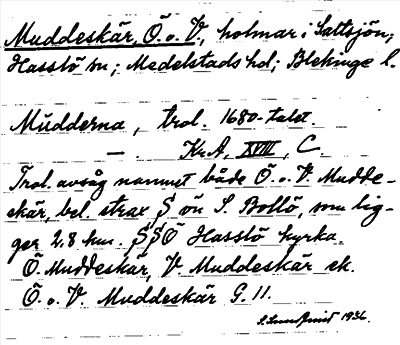 Muddeskär, Ö. o. V., holmar i Saltsjön;
Hasslö sn; Medelstads hd; Blekinge l.
Mudderna, trol. 1680-talet.
— . KrA, XVIII, C.
Trol. avsåg namnet både Ö. o. V. Mudde-
skär, bel. strax S ön S. Bollö, som lig-
ger 2,8 km. SSÖ Hasslö kyrka.
Ö. Muddeskär, V. Muddeskär ek.
Ö. o. V. Muddeskär G. 11.
1936.